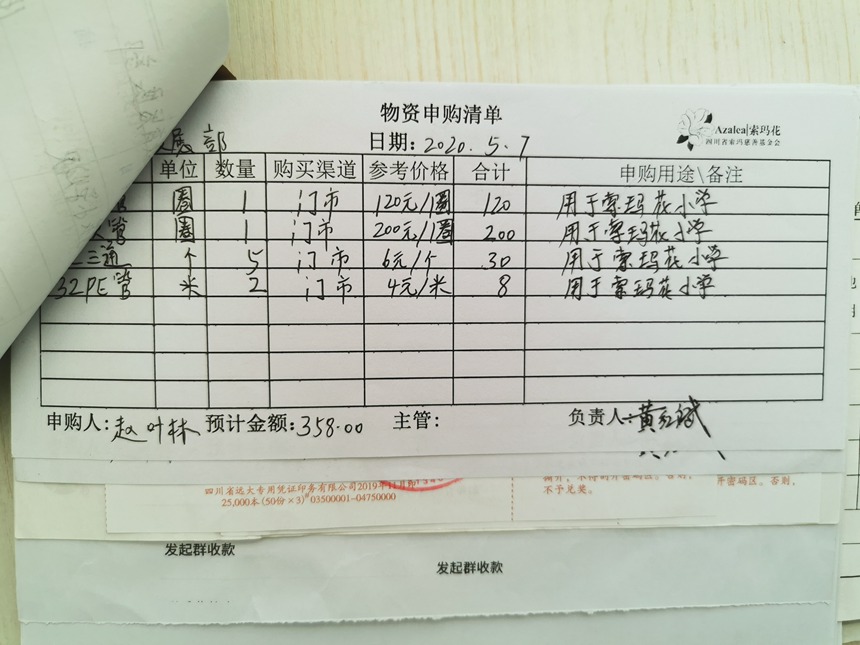 物资申购清单
Azalea|索玛花
四川省索玛慈善基金会
展部 日期: 2020.5.7
单位 数量 购买渠道 参考价格 合计 申购用途\备注
管 圈 1 门市 120元/1圈 120 用于索玛花小学
管 圈 1 门市 200元/1圈 200 用于索玛花小学
三通 个 5 门市 6元/个 30 用于索玛花小学
32PE管 米 2 门市 4元/米 8 用于索玛花小学
申购人: 赵叶林 预计金额: 358.00 主管: 负责人: 黄红斌
四川省远大专用凭证印务有限公司2019年11月印
25,000本(50份×3)# 03500001-04750000
开密码区。否则,
不予兑奖。
发起群收款
发起群收款